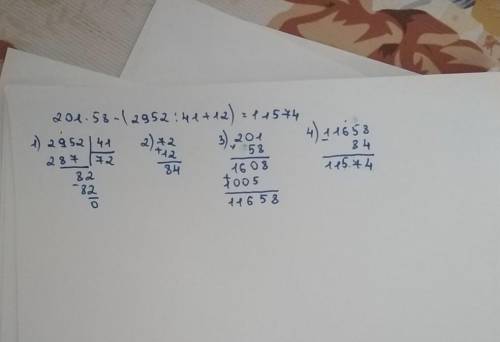 201 · 58 - (2952 : 41 + 12) = 11574
1) 2952 | 41
287 | 72
82
- 82
0
2) 72
+ 12
84
3) 201
58
1608
+ 1005
11658
4) - 11658
84
11574